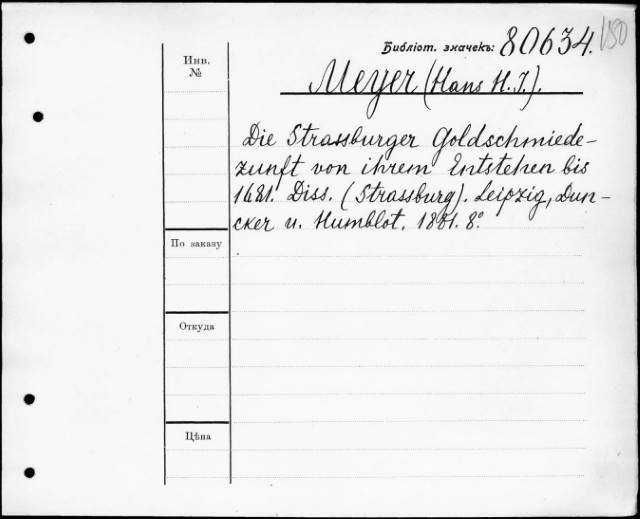 Библіот. значекъ: 80634.
150
Инв.
№
Meyer (Hans H. J.).
Die Strassburger Goldschmiede-
zunft von ihrem Entstehen bis
1681. Diss. (Strassburg). Leipzig, Dun-
cker u. Humblot. 1881. 8°.
По заказу
Откуда
Цѣна